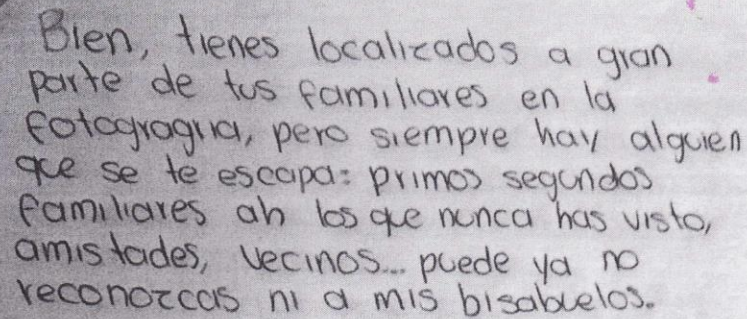 Bien, tienes localizados a gran
parte de tus familiares en la
fotogragia, pero siempre hay alguien
que se te escapa: primos segundos
familiares ah los que nunca has visto,
amistades, vecinos... puede ya no
reconozcas ni a mis bisabuelos.